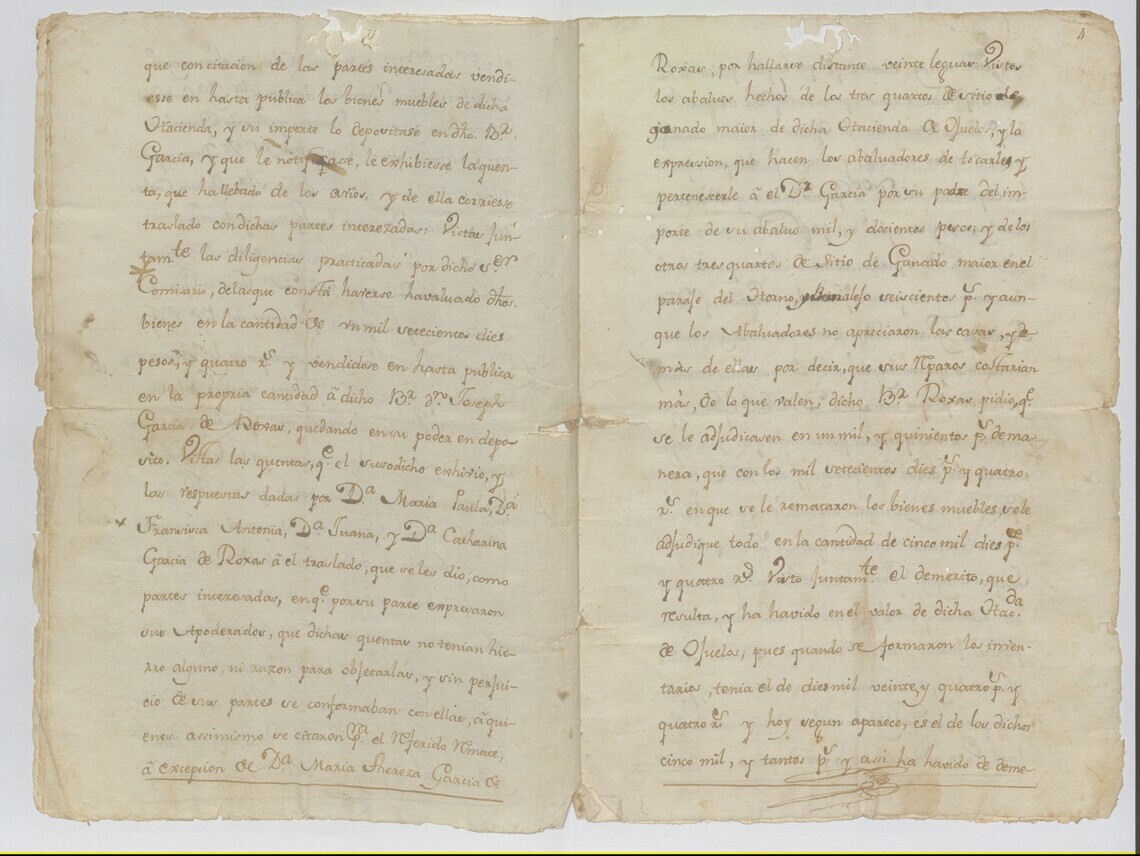 que con citacion de las partes interesadas vendi-
esse en hasta publica los bienes muebles de dicha
Hacienda, y su importe lo depositase en dho. Br.
Garcia, y que le notificasse, le exhibiesse la quen-
ta, que ha llebado de los avios, y de ella corriese
traslado con dichas partes interezadas: Vistas Jun-
tam.te las diligencias practicadas por dicho s.or
Comisario, de las que consta haverse havaluado dhos.
bienes en la cantidad de un mil setecientos dies
pesos, y quatro r.s y vendidose en hasta publica
en la propria cantidad â dicho Br. Dn. Joseph
Garcia de Roxas, quedando en su poder en depo-
sito. Vistas las quentas, q.e el susodicho exhivio, y
las respuestas dadas por D.a Maria Paula, D.a
Francisca Antonia, D.a Juana, y D.a Catharina
Garcia de Roxas â el traslado, que se les dio, como
partes interesadas, en q.e por su parte expresaron
sus Apoderados, que dichas quentas no tenian hie-
rro alguno, ni razon para objetarlas, y sin perjui-
cio de sus partes se conformaban con ellas, â qui-
enes assimismo se citaron p.a el Referido Remate,
â excepcion de D.a Maria Thereza Garcia de
4
Roxas, por hallarse distante veinte leguas: Vistos
los abaluos hechos de los tres quartos de sitio de
ganado maior de dicha Hacienda de Ojuelos, y la
expression, que hacen los abaluadores de tocarle, y
pertenescerle â el Dr. Garcia por su padre del im-
porte de su abaluo mil, y docientos pesos; y de los
otros tres quartos de Sitio de Ganado maior en el
paraje del Horno, seiscientos p.s Y aun-
que los Abaluadores no apreciaron las casas, y de-
màs de ellas por decir, que sus Reparos costarian
màs, de lo que valen, dicho Br. Roxas pidio, q.e
se le adjudicasen en un mil, y quinientos p.s de ma-
nera, que con los mil setecientos dies p.s y quatro
r.s en que se le remataron los bienes muebles, se le
adjudique todo en la cantidad de cinco mil dies p.s
y quatro r.s Visto Juntam.te el demerito, que
resulta, y ha havido en el valor de dicha Hac.da
de Ojuelos, pues quando se formaron los inven-
tarios, tenia el de dies mil veinte, y quatro p.s y
quatro r.s y hoy segun aparece, es el de los dichos
cinco mil, y tantos p.s y assi ha havido de deme-